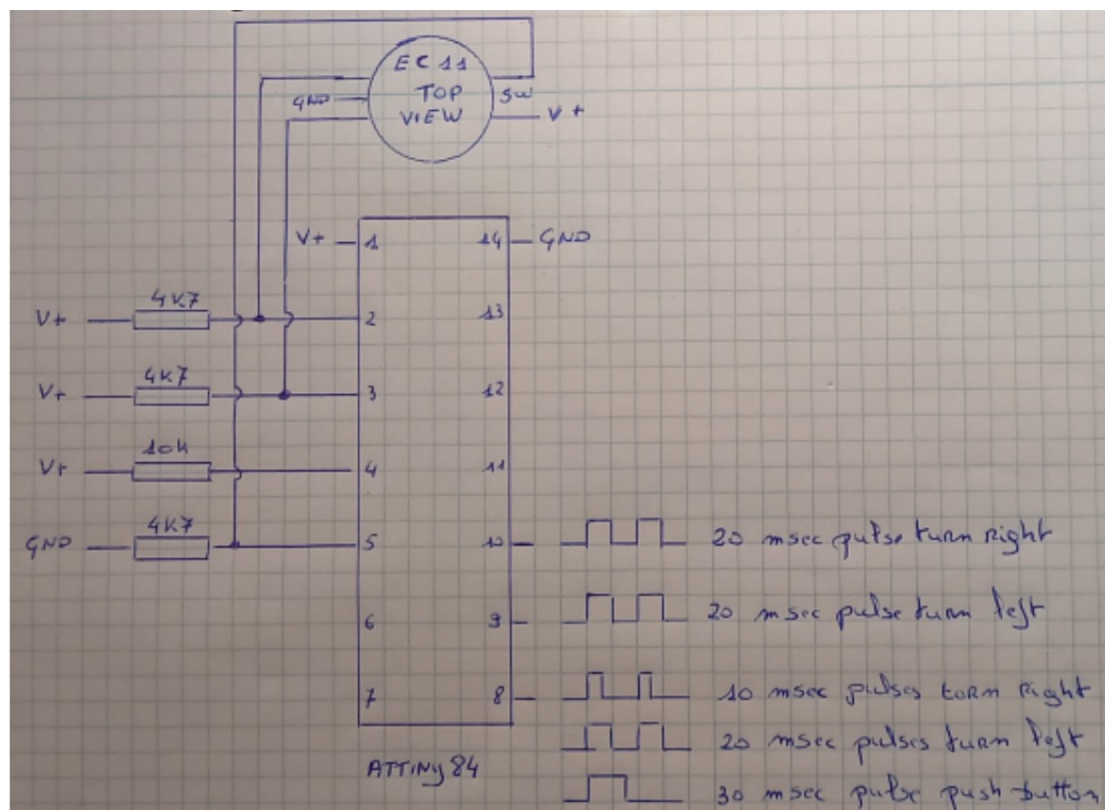 EC 11
TOP
VIEW
GND
SW
V+
V+
1
14
GND
V+
4K7
2
13
V+
4K7
3
12
V+
10K
4
11
GND
4K7
5
10
20 msec pulse turn right
6
9
20 msec pulse turn left
7
8
10 msec pulses torn right
20 msec pulses turn left
30 msec pulse push button
ATTiny 84